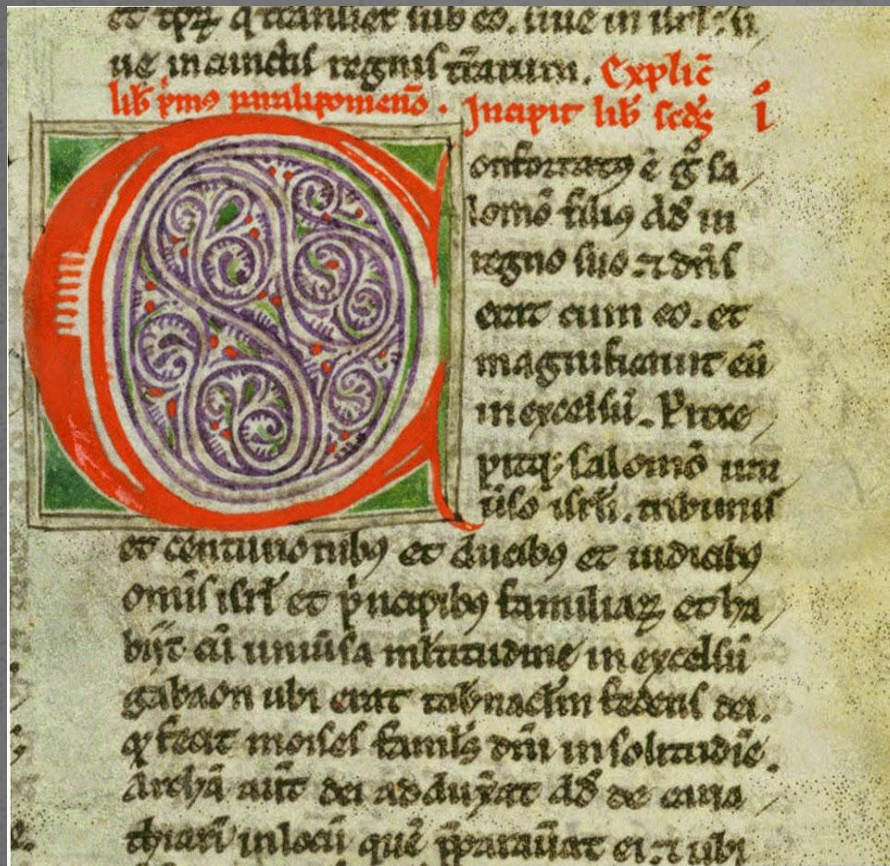 et tꝑꝝ q̄ tranſier̄t ſub eo. ſiue in iſrl̄. ſi
ue in cunctis regnis tr̄arum. Explic̄
lib̄ p̄mus paralipomenō. Incipit lib̄ ſcd̓s i
Confortatꝰ ē g̊ ſa
lomō filiꝰ dd̄ in
regno ſuo. ⁊ dn̄s
erat cum eo. et
magnificauit eū
in excelſū. Prece
pitqꝫ ſalomō uni
ūſo iſrl̄i. tribunis
et centurionibꝰ et ducibꝰ et iudicibꝰ
omīſ iſrl̄ et p̓ncipibꝰ familiaꝝ et ha
bijt cū uniūſa ml̄titudine in excelſū
gabaon ubi erat tab̄nacl̄m federis dei.
qd̄ fecit moiſes faml̄s dn̄i in ſolitudīe.
Archā aut̄ dei adduxat dd̄ de caria
thiarī in locū quē p̄parauat ei. ⁊ ubi